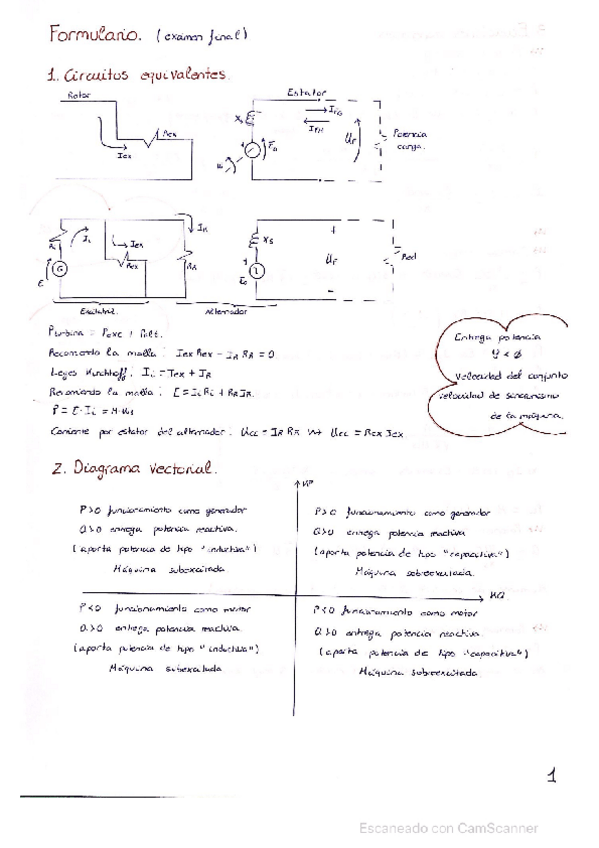 Formulario. (examen final)
1. Circuitos equivalentes.
Rotor
Estator
Rex
Iex
Xs
E0
IFG
IFM
UF
Potencia
carga.
Ri
Ii
Iex
Rex
IR
RR
G
E
Xs
E0
UF
Red
Excitatriz
Alternador
Pturbina = Pexc + Palt.
Recorriendo la malla: Iex Rex - IR RR = 0.
Leyes Kirchhoff: Ii = Iex + IR
Recorriendo la malla: E = Ii Ri + RR IR.
P = E·Ii = M·
Corriente por estator del alternador: Ucc = IR RR Ucc = Rex Iex
Entrega potencia
Velocidad del conjunto
velocidad de sincronismo
de la máquina.
2. Diagrama vectorial.
P>0 funcionamiento como generador
Q>0 entrega potencia reactiva.
(aporta potencia de tipo "inductiva")
Máquina subexcitada.
P>0 funcionamiento como generador
Q>0 entrega potencia reactiva
(aporta potencia de tipo "capacitiva")
Máquina sobreexcitada.
P<0 funcionamiento como motor
Q>0 entrega potencia reactiva.
(aporta potencia de tipo "inductiva")
Máquina subexcitada
P<0 funcionamiento como motor
Q>0 entrega potencia reactiva.
(aporta potencia de tipo "capacitiva")
Máquina sobreexcitada
1
Escaneado con CamScanner